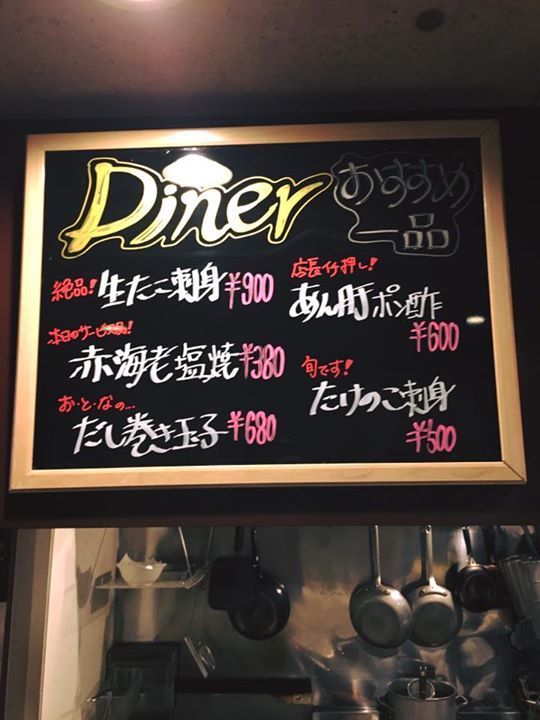 Diner
おすすめ
一品
絶品!
生たこ刺身 ¥900
本日のサービス品!
赤海老塩焼 ¥380
お・と・なの…
だし巻き玉子 ¥680
店長イチ押し!
あん肝ポン酢
¥600
旬です!
たけのこ刺身
¥500